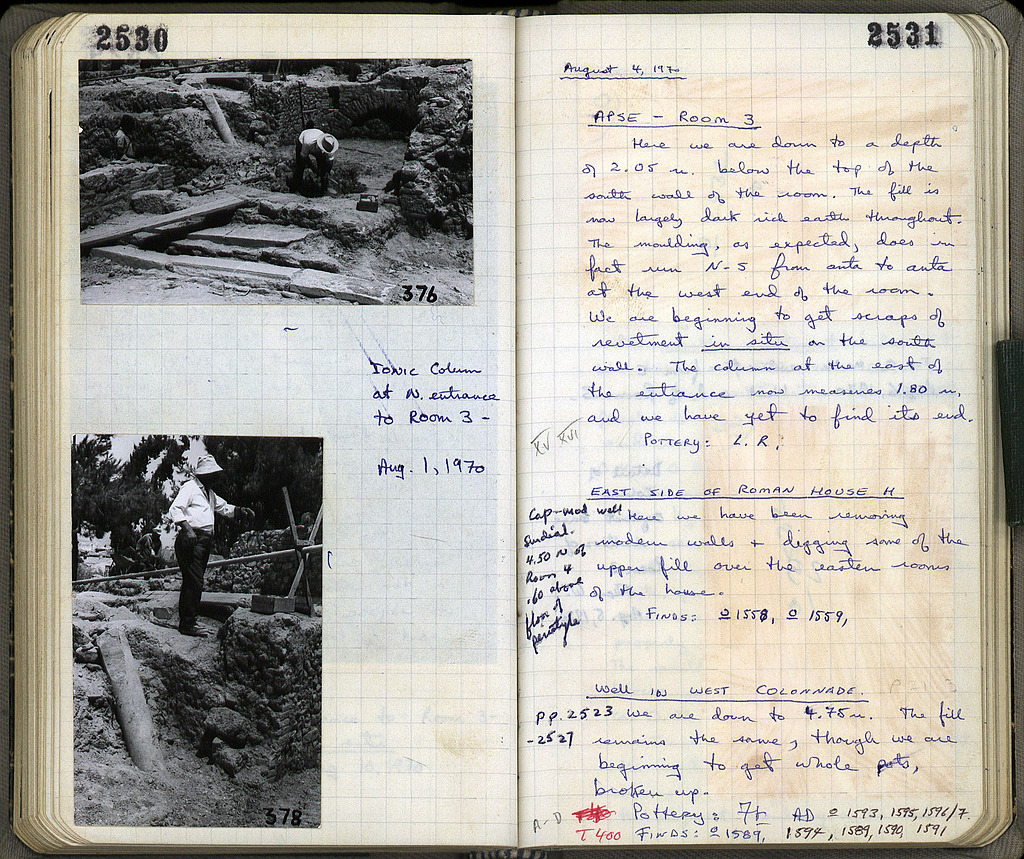 2530
376
Ionic Column
at N. entrance
to Room 3 -
Aug. 1, 1970
378
2531
August 4, 1970
APSE - ROOM 3
Here we are down to a depth
of 2.05 m. below the top of the
south wall of the room. The fill is
now largely dark rich earth throughout.
The moulding, as expected, does in
fact run N-S from anta to anta
at the west end of the room.
We are beginning to get scraps of
revetment in situ on the south
wall. The column at the east of
the entrance now measures 1.80 m,
and we have yet to find its end.
XV XVI
POTTERY: L.R.
EAST SIDE OF ROMAN HOUSE H
Here we have been removing
modern walls + digging some of the
upper fill over the eastern rooms
of the house.
FINDS: 1558, 1559,
well
sundial.
4.50 N of
Room 4
.60 above
floor of
peristyle
WELL IN WEST COLONNADE.
PP. 2523
-2527
We are down to 4.75 m. The fill
remains the same, though we are
beginning to get whole pots,
broken up.
A-D
Pottery: AD 1593, 1595, 1596/7.
T 400 FINDS: 1589, 1594, 1589, 1590, 1591